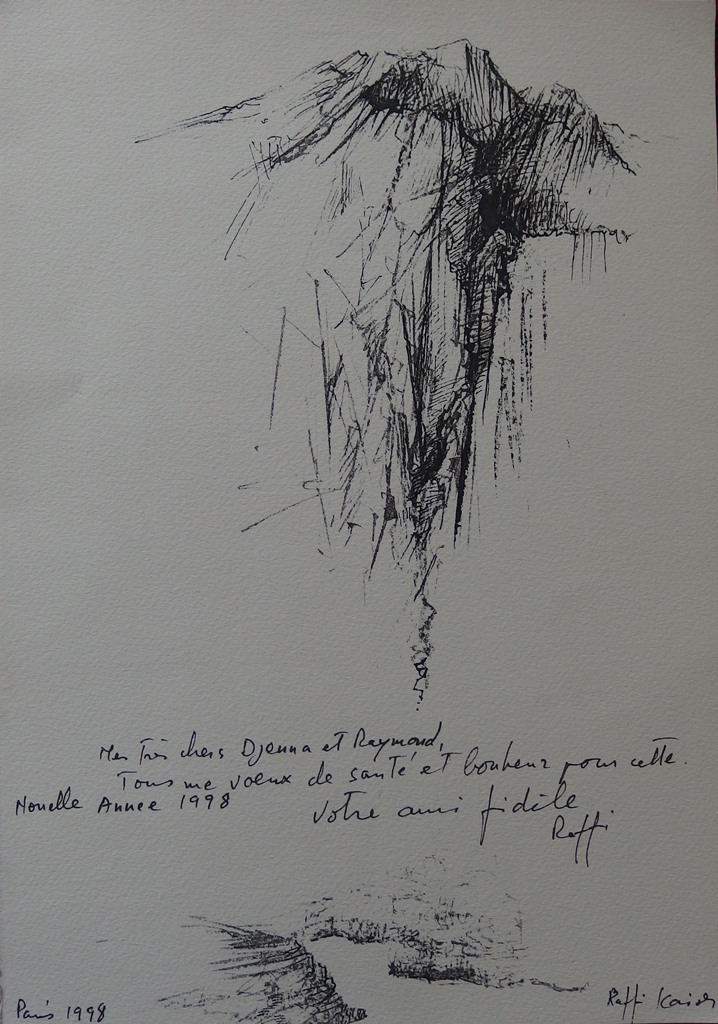 Mes Très chers Djenna et Raymond,
Tous me voeux de santé et bonheur pour cette.
Nouelle Annee 1998
Votre ami fidèle
Raffi
Paris 1998
Raffi Kaiser